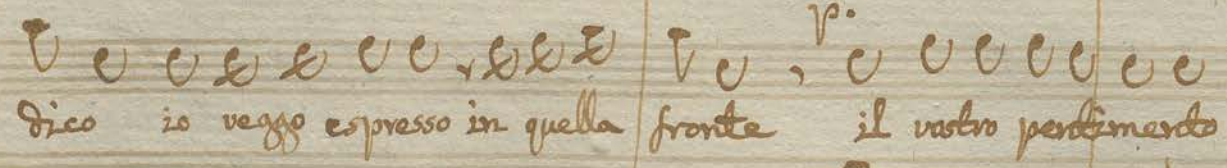 p.
dico io veggo espresso in quella fronte il vostro pentimento